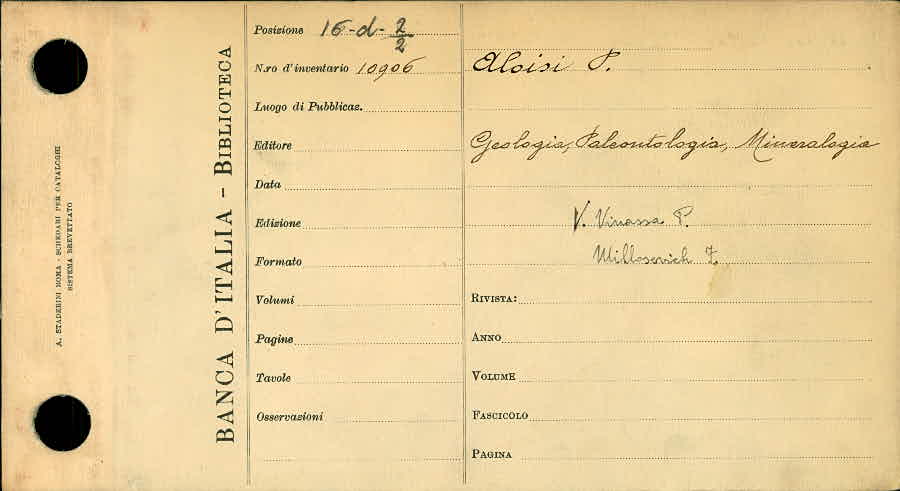 A. STADERINI ROMA - SCHEDARI PER CATALOGHI
SISTEMA BREVETTATO
BANCA D'ITALIA - BIBLIOTECA
Posizione 16-d-2/2
N.ro d'inventario 10906
Luogo di Pubblicaz.
Editore
Data
Edizione
Formato
Volumi
Pagine
Tavole
Osservazioni
Aloisi P.
Geologia, Paleontologia, Mineralogia
V. Vinassa P.
Millosevich F.
RIVISTA:
ANNO
VOLUME
FASCICOLO
PAGINA